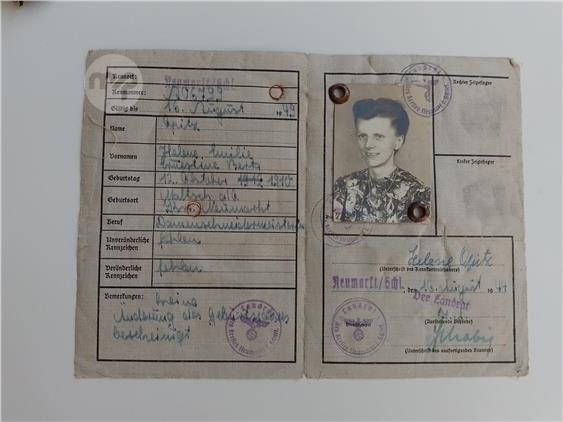 Kennort: Neumarkt/Schl.
Kennummer: A06799
Gültig bis 16. August 1949
Name Opitz
Vornamen Helene Emilie
Ernestine Berta
Geburtstag 12. Oktober 1910
Geburtsort Maltsch a/O
Krs. Neumarkt
Beruf Damenschneidermeisterin
Unveränderliche Kennzeichen fehlen
Veränderliche Kennzeichen fehlen
Bemerkungen: keine
Änderung des Geburtstages
bescheinigt
Rechter Zeigefinger
Linker Zeigefinger
Helene Opitz
(Unterschrift des Kennkarteninhabers)
Neumarkt/Schl., den 16. August
Der Landrat
(Ausstellende Behörde)
(Unterschrift des ausfertigenden Beamten)
Landrat
des Kreises Neumarkt